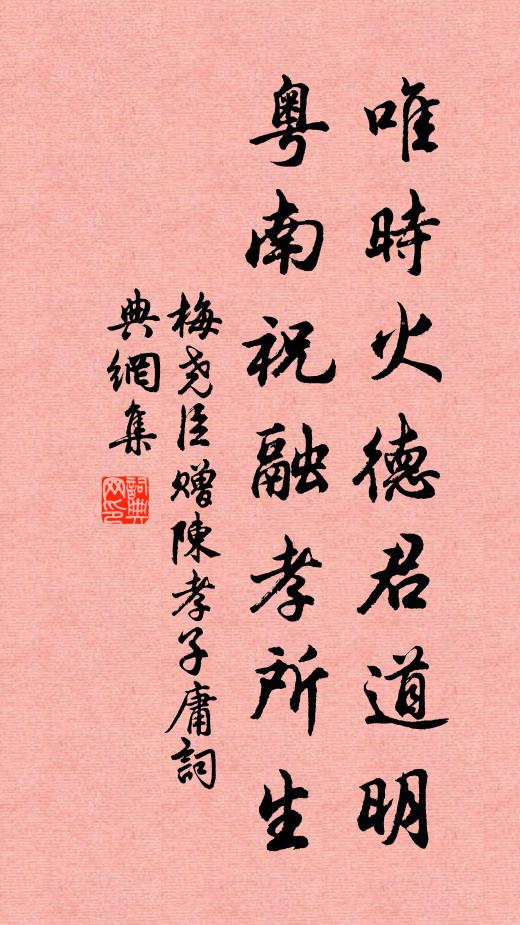 唯時火德君道明
粵南祝融孝所生
梅尧臣赠陳孝子庸詞
典網集
詞典網印